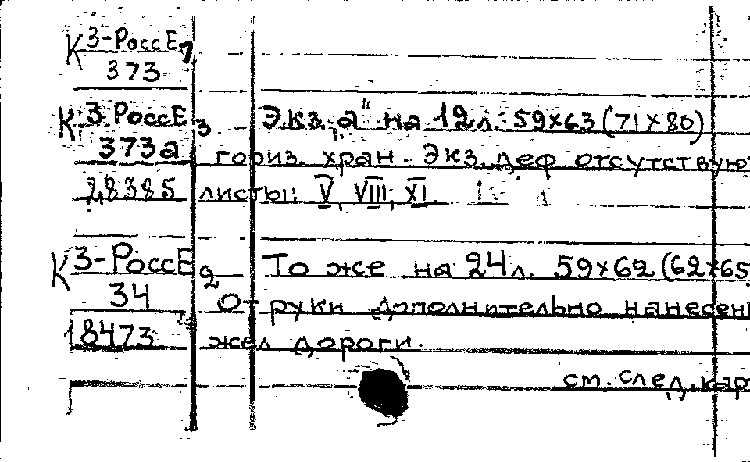 К 3-РоссЕ 7
373
К 3-РоссЕ 3 Экз. „а" на 12 л. 59×63 (71×80)
373а гориз. хран. Экз. деф отсутствую
28385 листы: V, VIII, XI.
К 3-РоссЕ 2 То же на 24 л. 59×62 (62×65
34 От руки дополнительно нанесен
18473 жел дороги.
см. след. кар